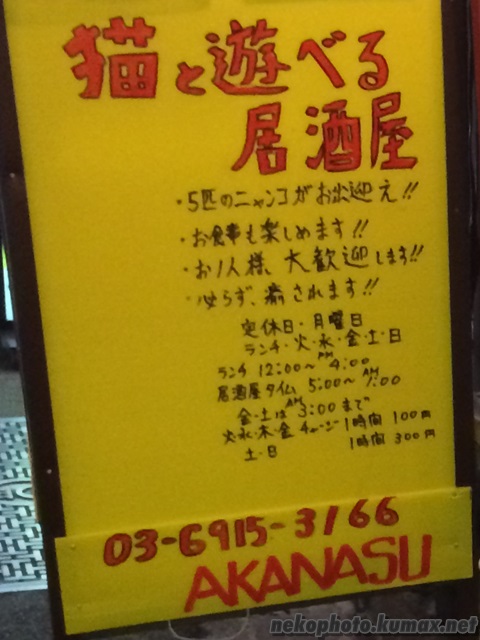 猫と遊べる
居酒屋
・5匹のニャンコがお出迎え!!
・お食事も楽しめます!!
・お1人様、大歓迎します!!
・必らず、癒されます!!
定休日・月曜日
ランチ・火・水・金・土・日
ランチ 12:00〜PM4:00
居酒屋タイム 5:00〜AM1:00
金・土はAM3:00まで
火・水・木・金 チャージ 1時間 100円
土・日 1時間 300円
03-6915-3166
AKANASU
nekophoto.kumax.net